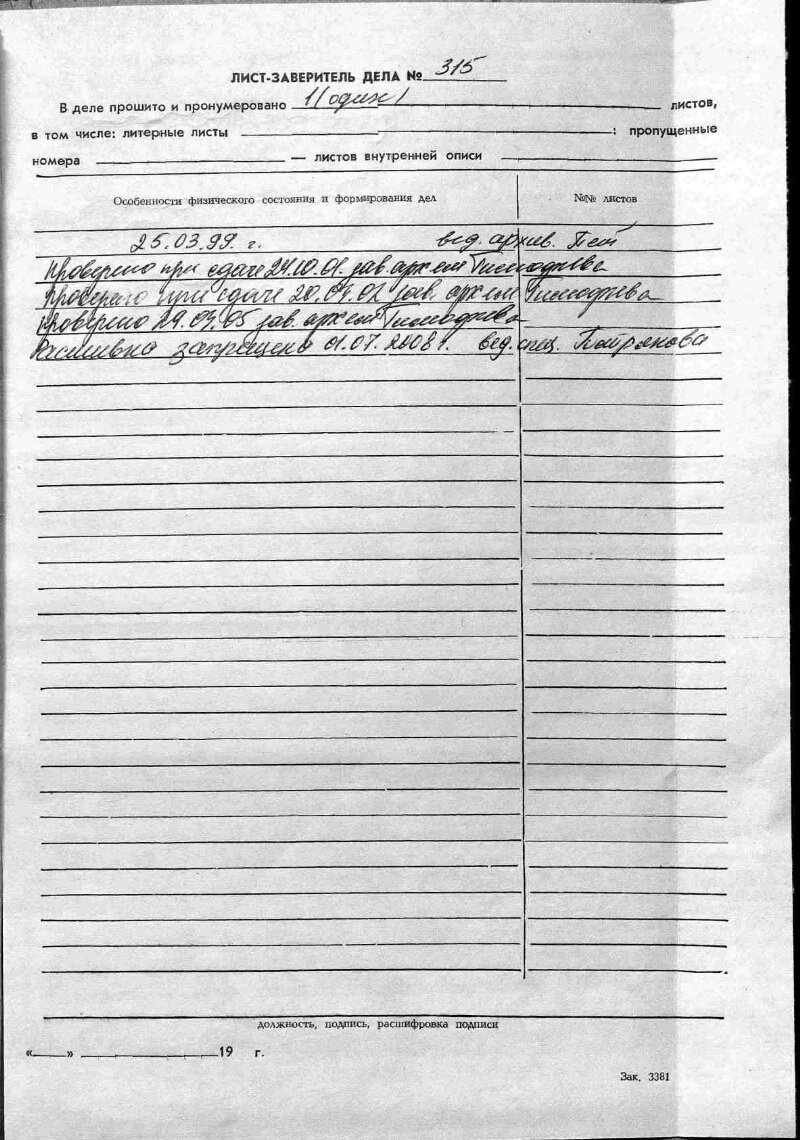 ЛИСТ-ЗАВЕРИТЕЛЬ ДЕЛА № 315
В деле прошито и пронумеровано 1 (один) листов,
в том числе: литерные листы : пропущенные
номера — листов внутренней описи
Особенности физического состояния и формирования дел №№ листов
25.03.99. г. вед. архив.
Проверено при сдаче 24.10.01. зав. архем Тимофеева
Проверено при сдаче 20.04.02 зав. архем Тимофеева
Проверено 29.04.05 зав. архем Тимофеева
Расшивка запрещена 01.07.2008 г. вед. спец.
должность, подпись, расшифровка подписи
« » 19 г.
Зак. 3381